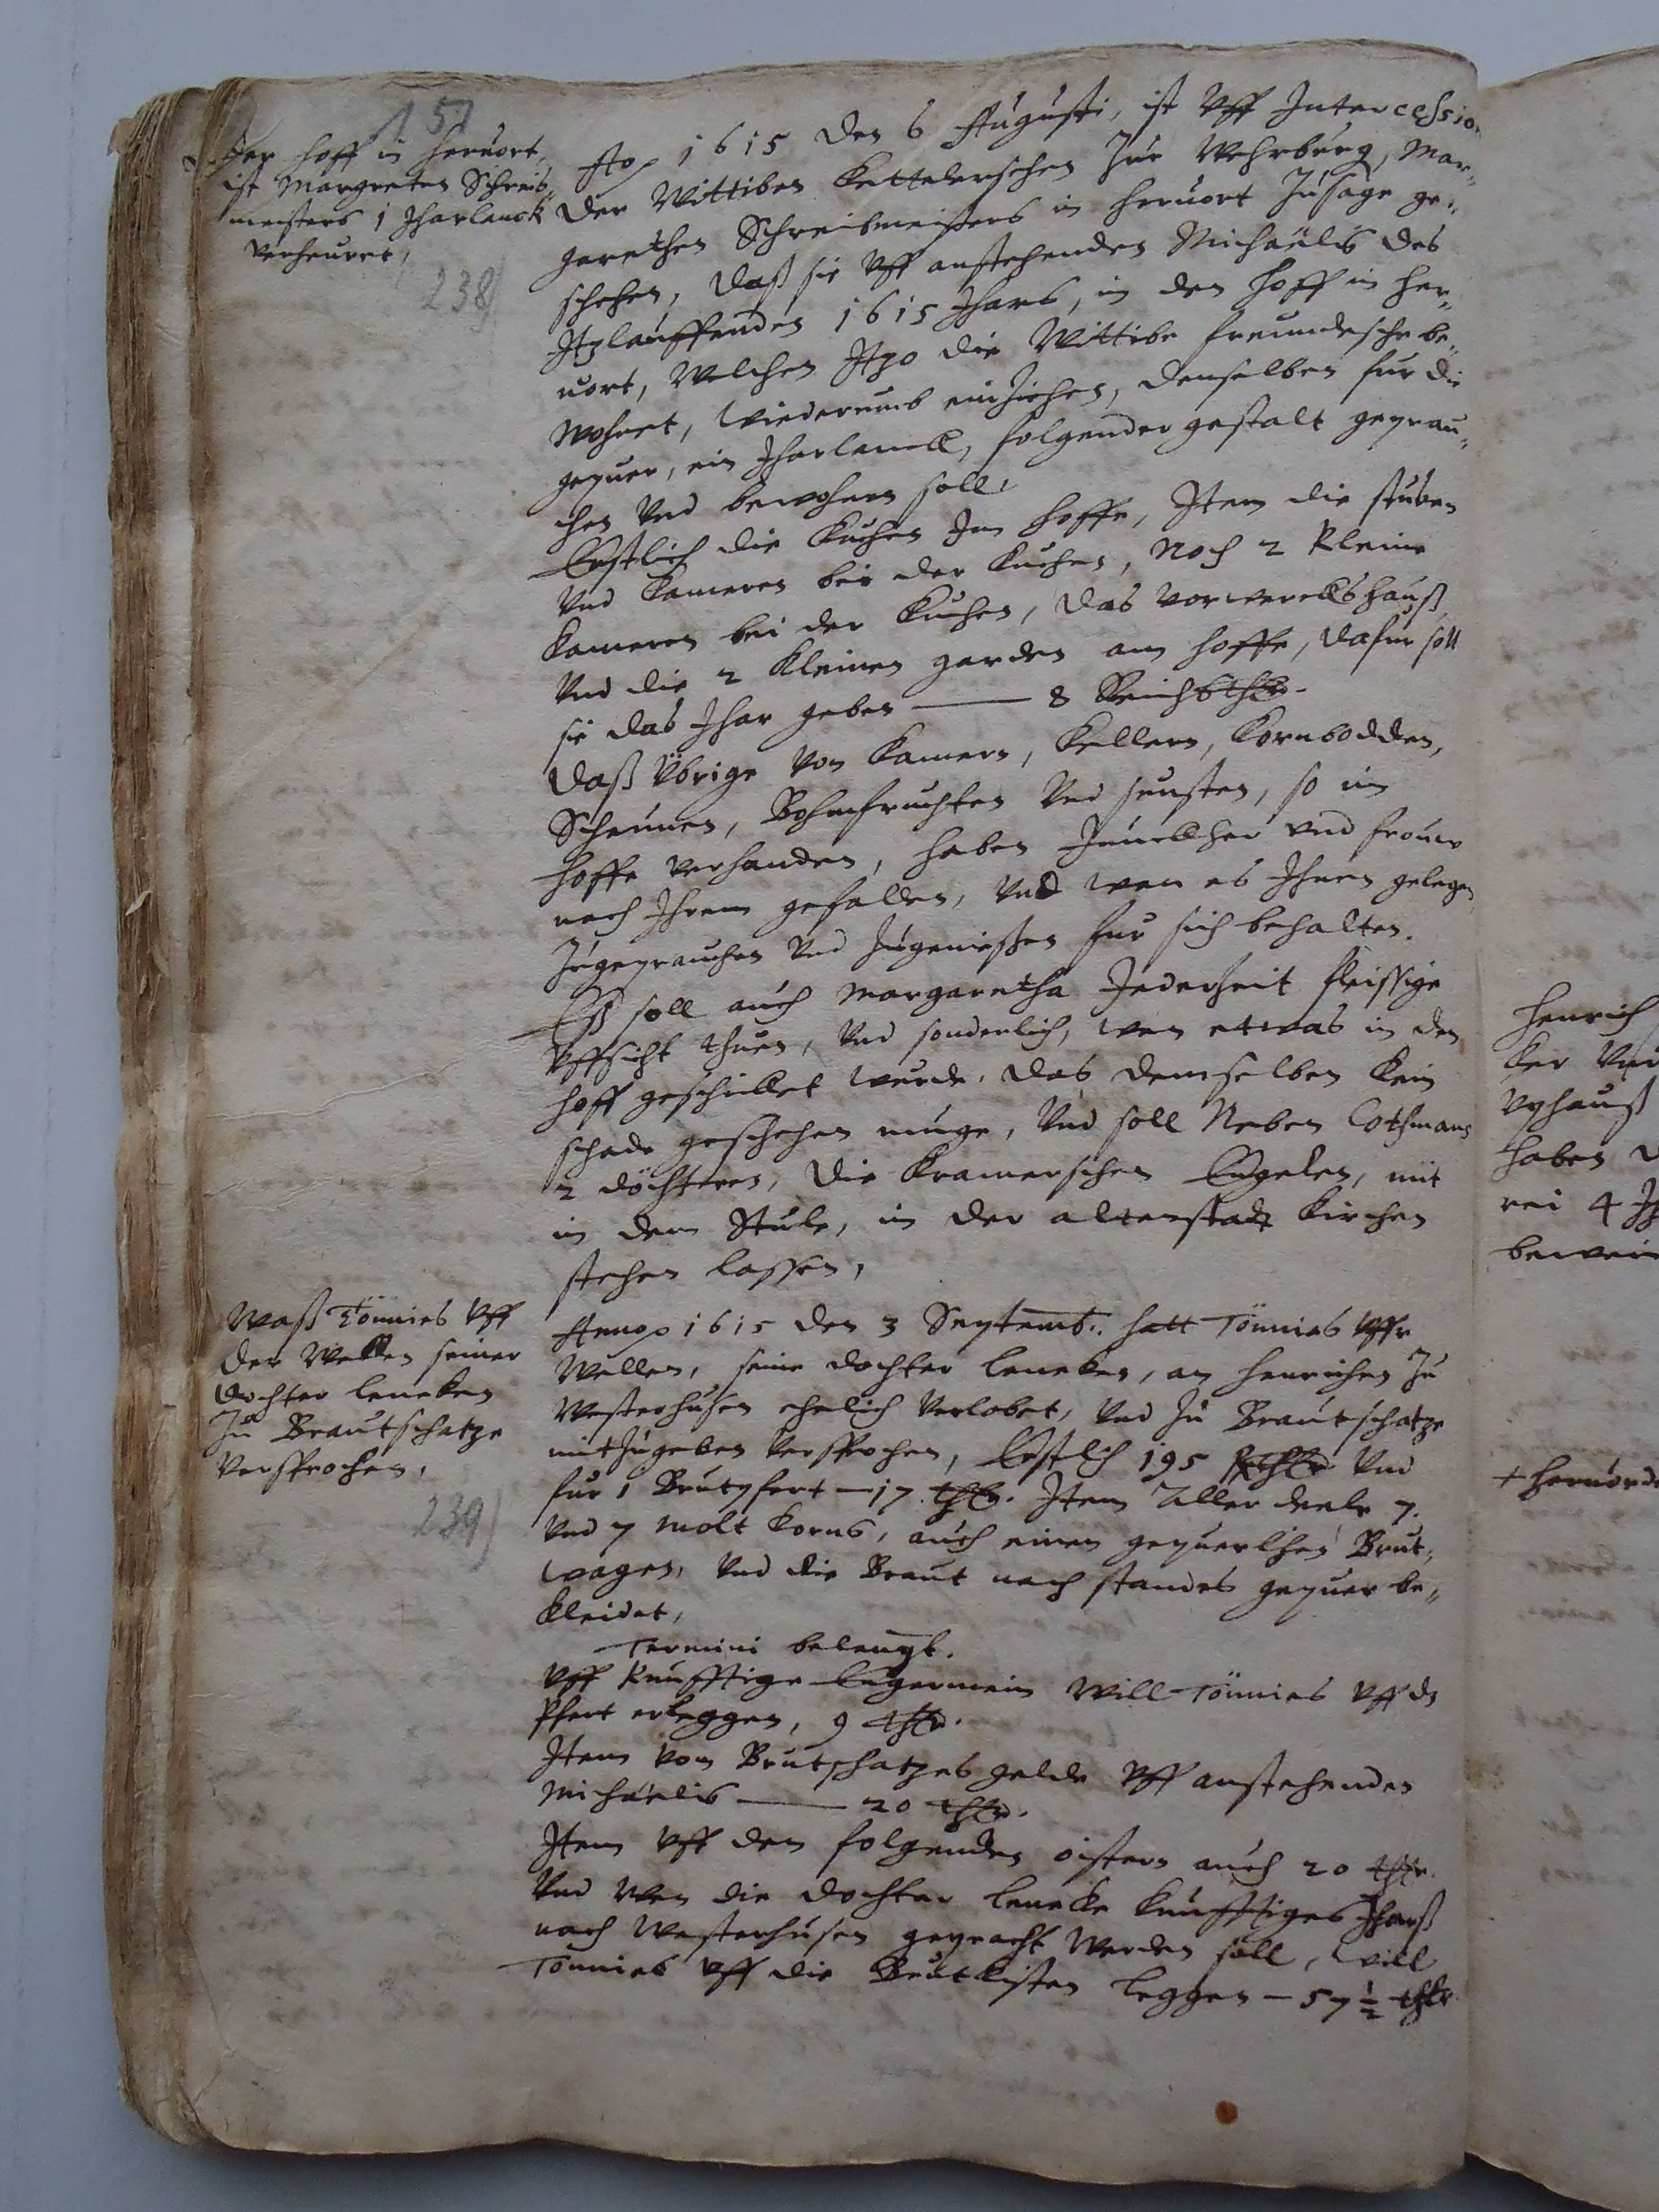 151
Der hoff in heruort,
ist Margreten Schreib,,
meisters 1 Jharlanck
verheuret,
238)
Ao 1615 den 6 Augusti, ist vff Intercession
der Wittiben Kettelerschen zur Mehrburg, Mar,,
garethen Schreibmeisters in heruort zusage ge,,
schehen, daß sie vff anstehenden Michaëlis des
Itzlauffenden 1615 Jhars, in den hoff in her,,
uort, welchen Itzo die Wittibe freundesche be,,
wohnet, wiederumb einziehen, denselben fur die
gepuer, ein Jharlanck, folgender gestalt geprau,,
chen vnd bewohnen soll,
Erstlich die Kuchen Im hoffe, Item die stuben
vnd Cameren bei der Kuchen, Noch 2 kleine
Cameren bei der Kuchen, das vorwercks hauß
vnd die 2 kleinen garden am hoffe, dafur soll
sie das Jhar geben — 8 Reichsthlr.
Daß Übrige von Camern, Kellern, Kornbodden,
Scheunen, Bohmfruchten vnd sunsten, so im
hoffe verhanden, haben Junckher vnd frouw
nach Ihrem gefallen, vnd wan es Ihnen gelegen
zugeprauchen vnd zugeniessen fur sich behalten.
Eß soll auch Margaretha Jederzeit fleissige
vffsicht thuen, vnd sonderlich, wan etwas in den
hoff geschicket wurde, das demselben kein
schade geschehen muge, vnd soll Neben Cothmans
2 döchteren, die Kramerschen Engelen, mit
in dem Stule, in der altenstadt Kirchen
stehen lassen,
Waß Tönnies vff
der Wellen seiner
dochter leneken
Zu Brautschatze
versprochen,
239)
Anno 1615 den 3 Septemb. hatt Tönnies vffr
Wellen, seine dochter leneken, an henrichen zu
Westerhusen ehelich verlobet, vnd zu Brautschatze
mitzugeben versprochen, Erstlich 195 Rthlr vnd
fur 1 Brutpfert — 17 thlr. Item Aller deele 7.
vnd 7 molt Korns, auch einen gepuerlichen Brut,,
wagen, vnd die Braut nach standes gepuer be,,
kleidet,
Termini belangt.
Vff kunfftige Engermein will Tönnies vff ds
Pfert erleggen, 9 thlr.
Item vom Brutschatzes gelde vff anstehenden
Michaëlis — 20 thlr.
Item vff den folgenden oistern auch 20 thlr.
Vnd wen die dochter lenecke kunfftiges Jharß
nach Westerhusen gepracht werden soll, will
Tönnies vff die Brutkisten leggen — 57 ½ thlr
henrich
ker vnd
vphauß
haben
rei 4
+ heruord